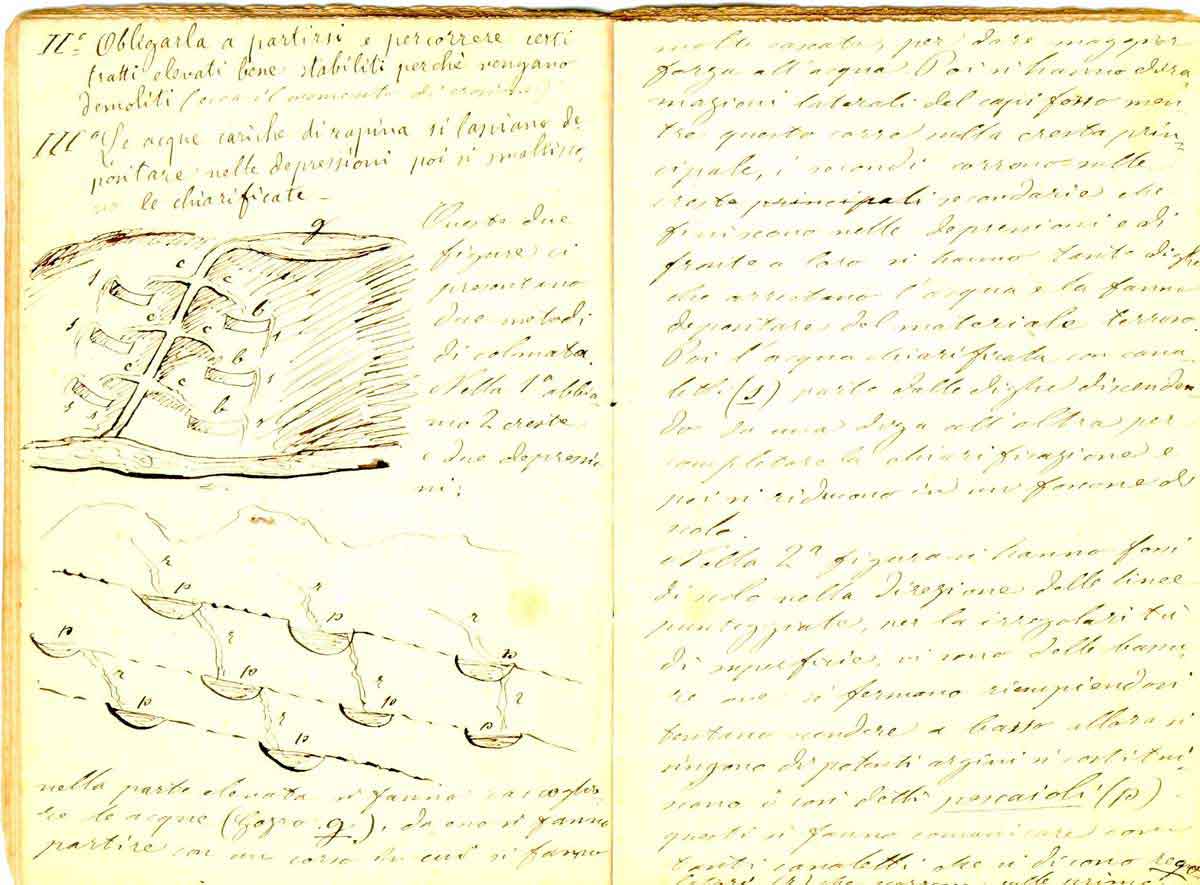 IIº Obbligarla a partirsi e percorrere certi
tratti elevati bene stabiliti perchè vengano
demoliti (ecco il momento di erosione)
IIIº Le acque cariche di rapina si lasciano de-
positare nelle depressioni poi si smaltisco-
no le chiarificate –
Queste due
figure ci
presentano
due metodi
di colmata.
Nella 1ª abbia
mo 2 creste
e due depressio
ni:
g
c
c
c
c
c
c
b
b
b
s
s
s
s
s
s
s
r
r
r
p
p
p
r
r
p
p
r
p
p
r
r
p
p
p
r
p
nella parte elevata si fanno raccoglie-
re le acque (Gozzo g.), da esso si fanno
partire con un corso in cui si fanno
molte cascate, per dare maggior
forza all'acqua. Poi si hanno dira
mazioni laterali del capifosso men
tre questo corre nella cresta prin-
cipale, i secondi corrono nelle
creste principali secondarie che
finiscono nelle depressioni e di
fronte a loro si hanno tante dighe
che arrestano l'acqua e la fanno
depositare del materiale terroso
Poi l'acqua chiarificata con cana
letti (s) parte dalle dighe discenden
do da una diga all'altra per
completare la chiarificazione e
poi si riducono in un fossone di
scolo.
Nella 2ª figura si hanno fossi
di scolo nella direzione delle linee
punteggiate, per la irregolarità
di superficie, vi sono delle bassu-
re ove si fermano riempiendosi
tentano scendere a basso allora si
cingono di potenti argini si costitui-
scono i così detti pescaioli (p) –
questi si fanno comunicare con
tanti canaletti che si dicono rego